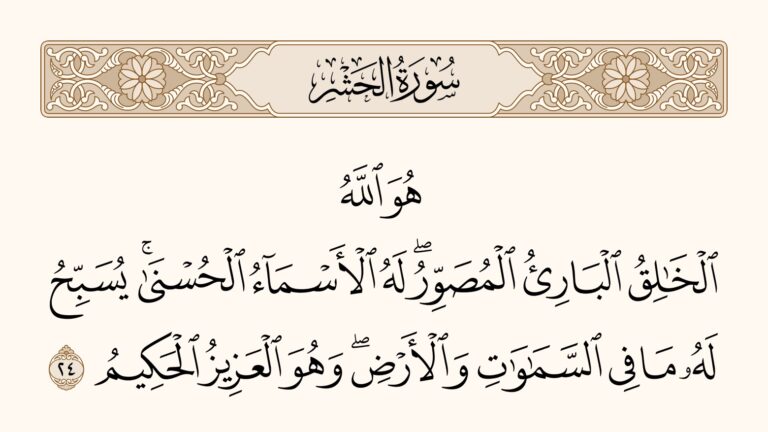 سُورَةُ الحَشْرِ
هُوَ ٱللَّهُ
ٱلْخَٰلِقُ ٱلْبَارِئُ ٱلْمُصَوِّرُۖ لَهُ ٱلْأَسْمَآءُ ٱلْحُسْنَىٰۚ يُسَبِّحُ
لَهُۥ مَا فِى ٱلسَّمَٰوَٰتِ وَٱلْأَرْضِۖ وَهُوَ ٱلْعَزِيزُ ٱلْحَكِيمُ ٢٤